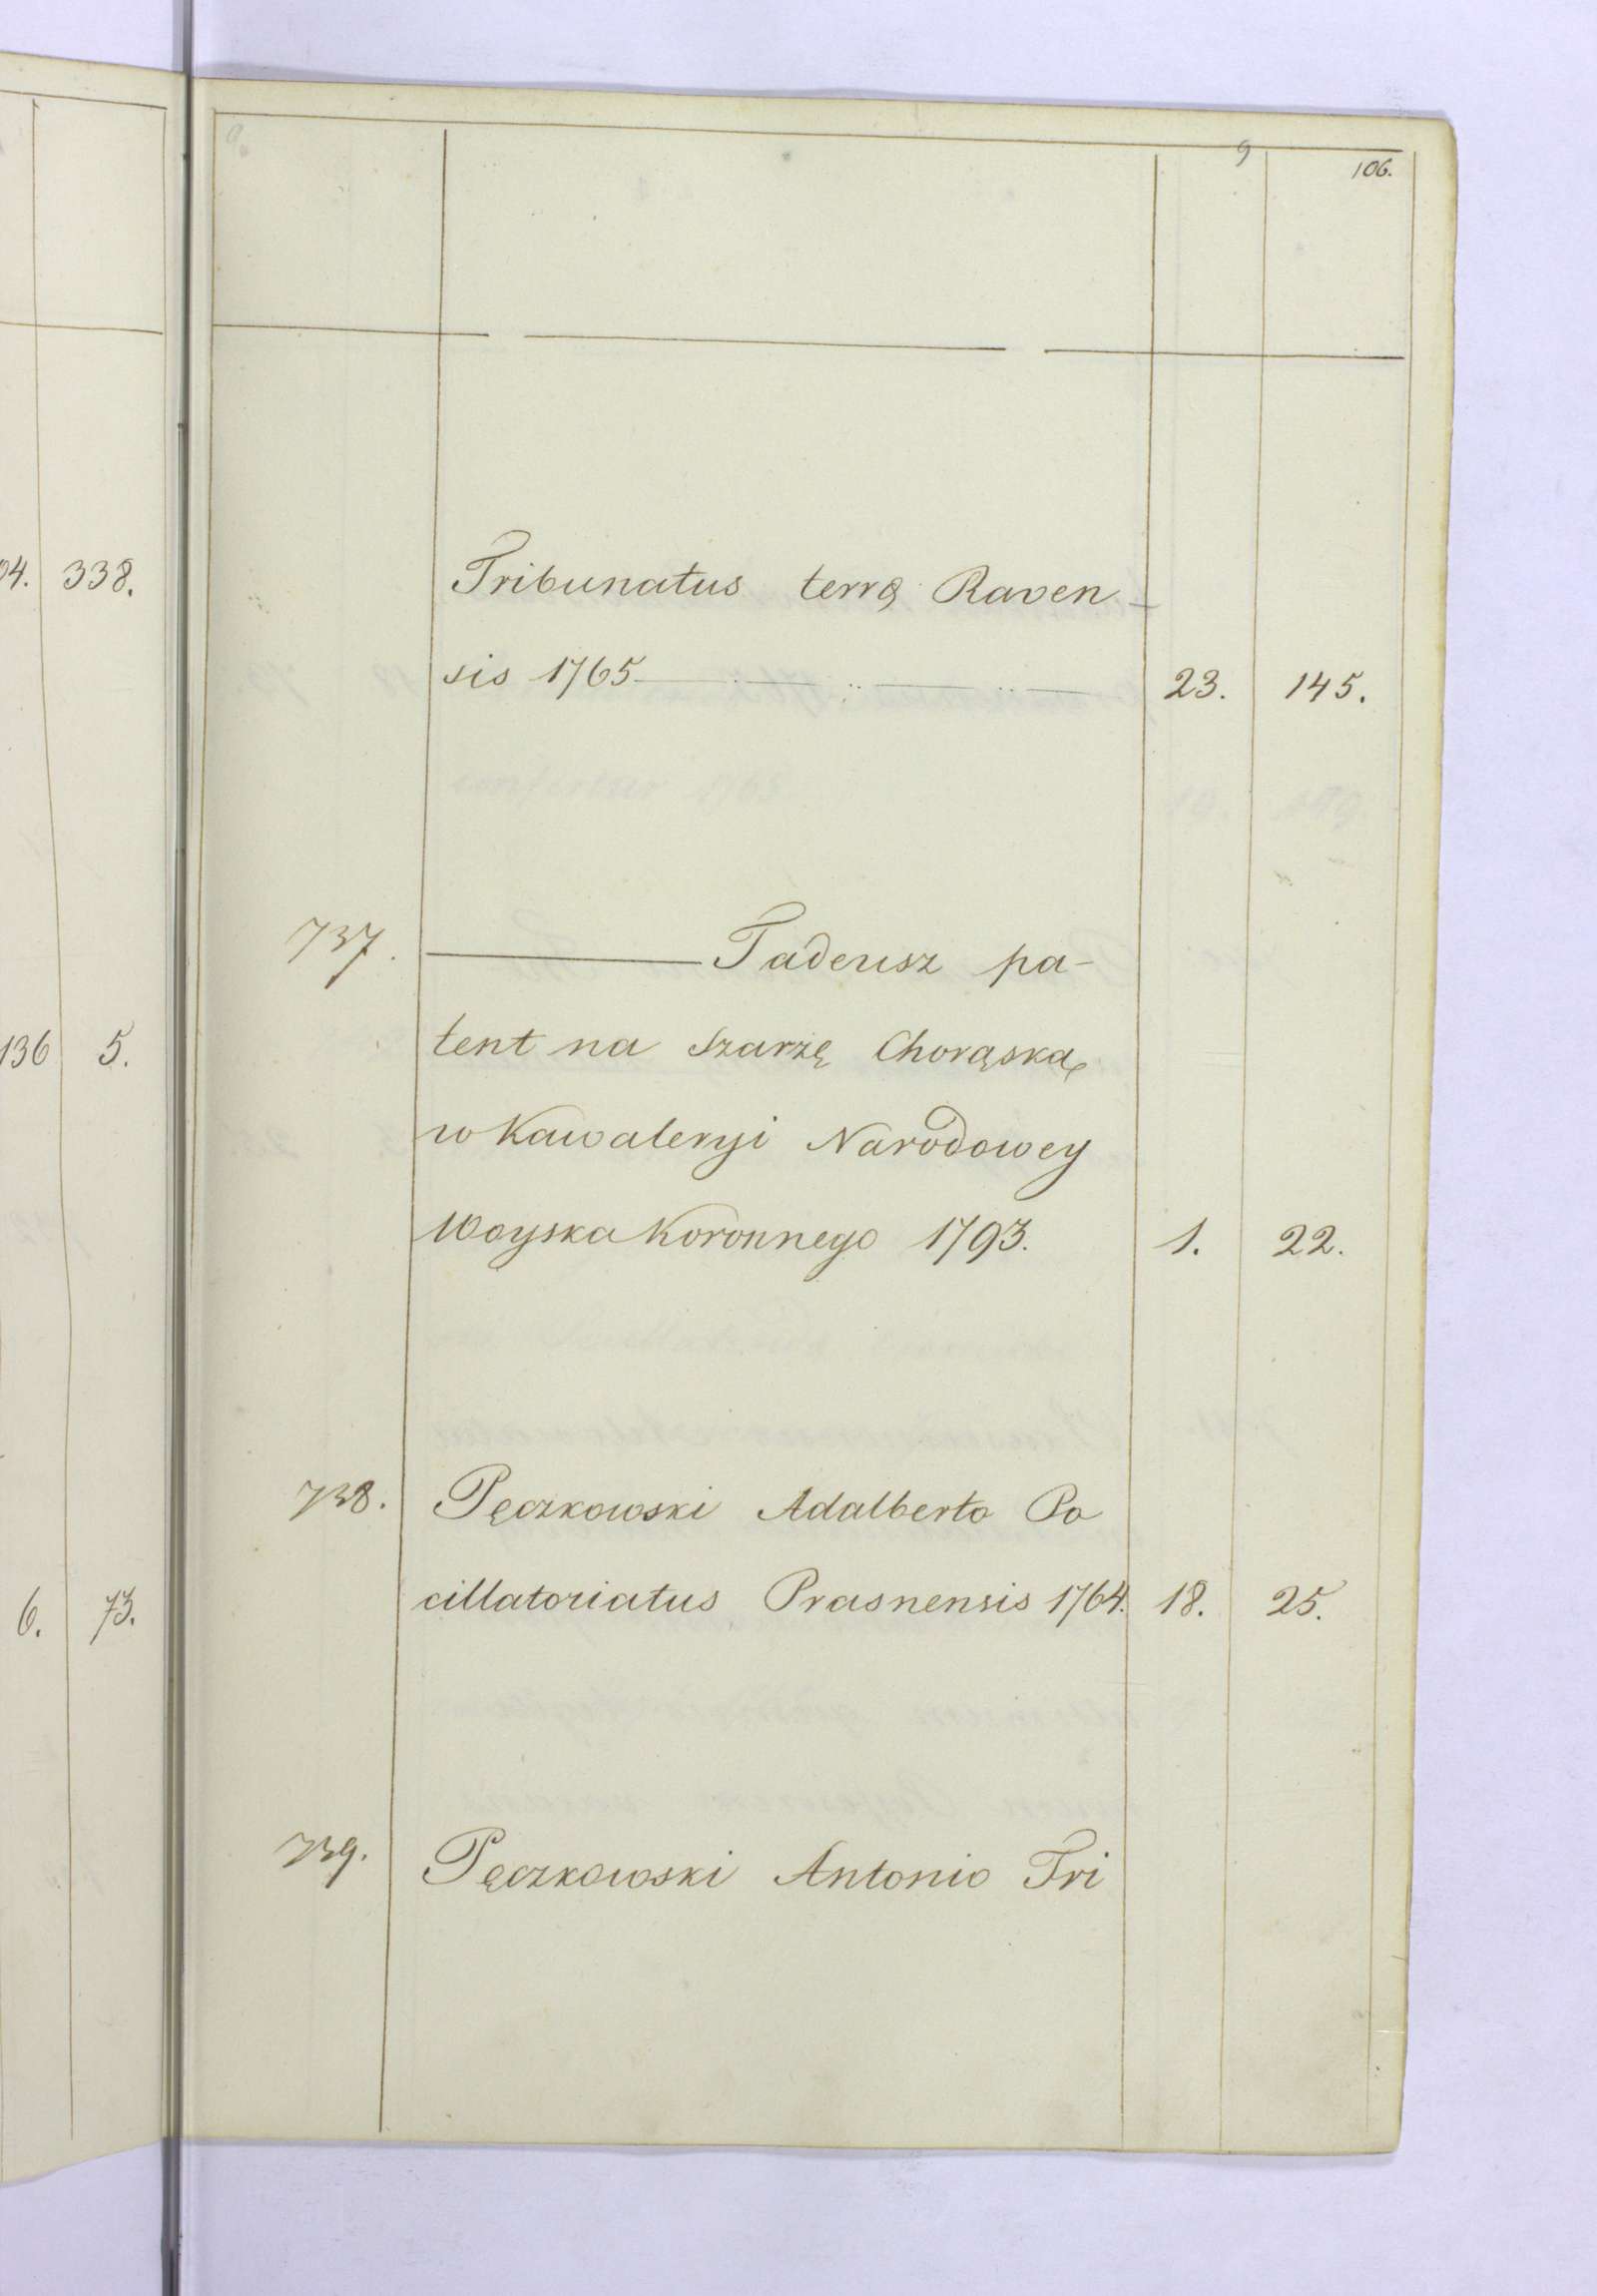 9
106.
04. 338.
Tribunatus terrę Raven-
sis 1765 23. 145.
737. Tadeusz pa-
tent na Szarzę Chorąską
136 5.
w Kawaleryi Narodowey
Woyska Koronnego 1793. 1. 22.
738. Pęczkowski Adalberto Po
cillatoriatus Prasnensis 1764. 18. 25.
6. 73.
739. Pęczkowski Antonio Tri